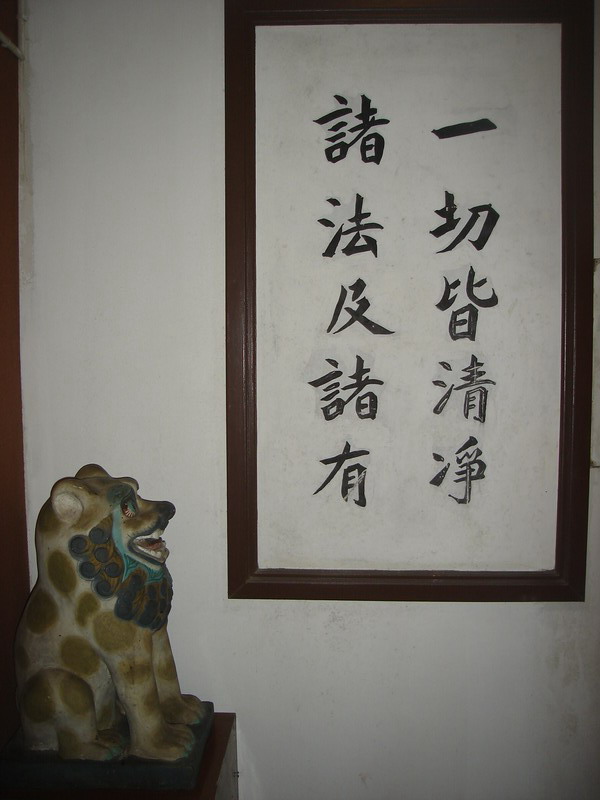 一切皆清凈
諸法及諸有